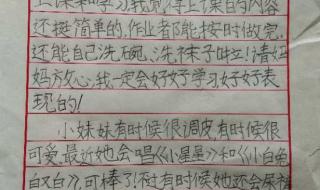 上课和学习,我觉得上课的内容
还挺简单的,作业者都能按时做完,
还能自己洗碗、洗袜子哇!请妈
妈放心,我一定会好好学习,好好表
现的!
小妹妹有时候很调皮有时候很
可爱,最近她会唱《小星星》和《小白兔
白又白》,可棒了!不过有时候她还会尿裤